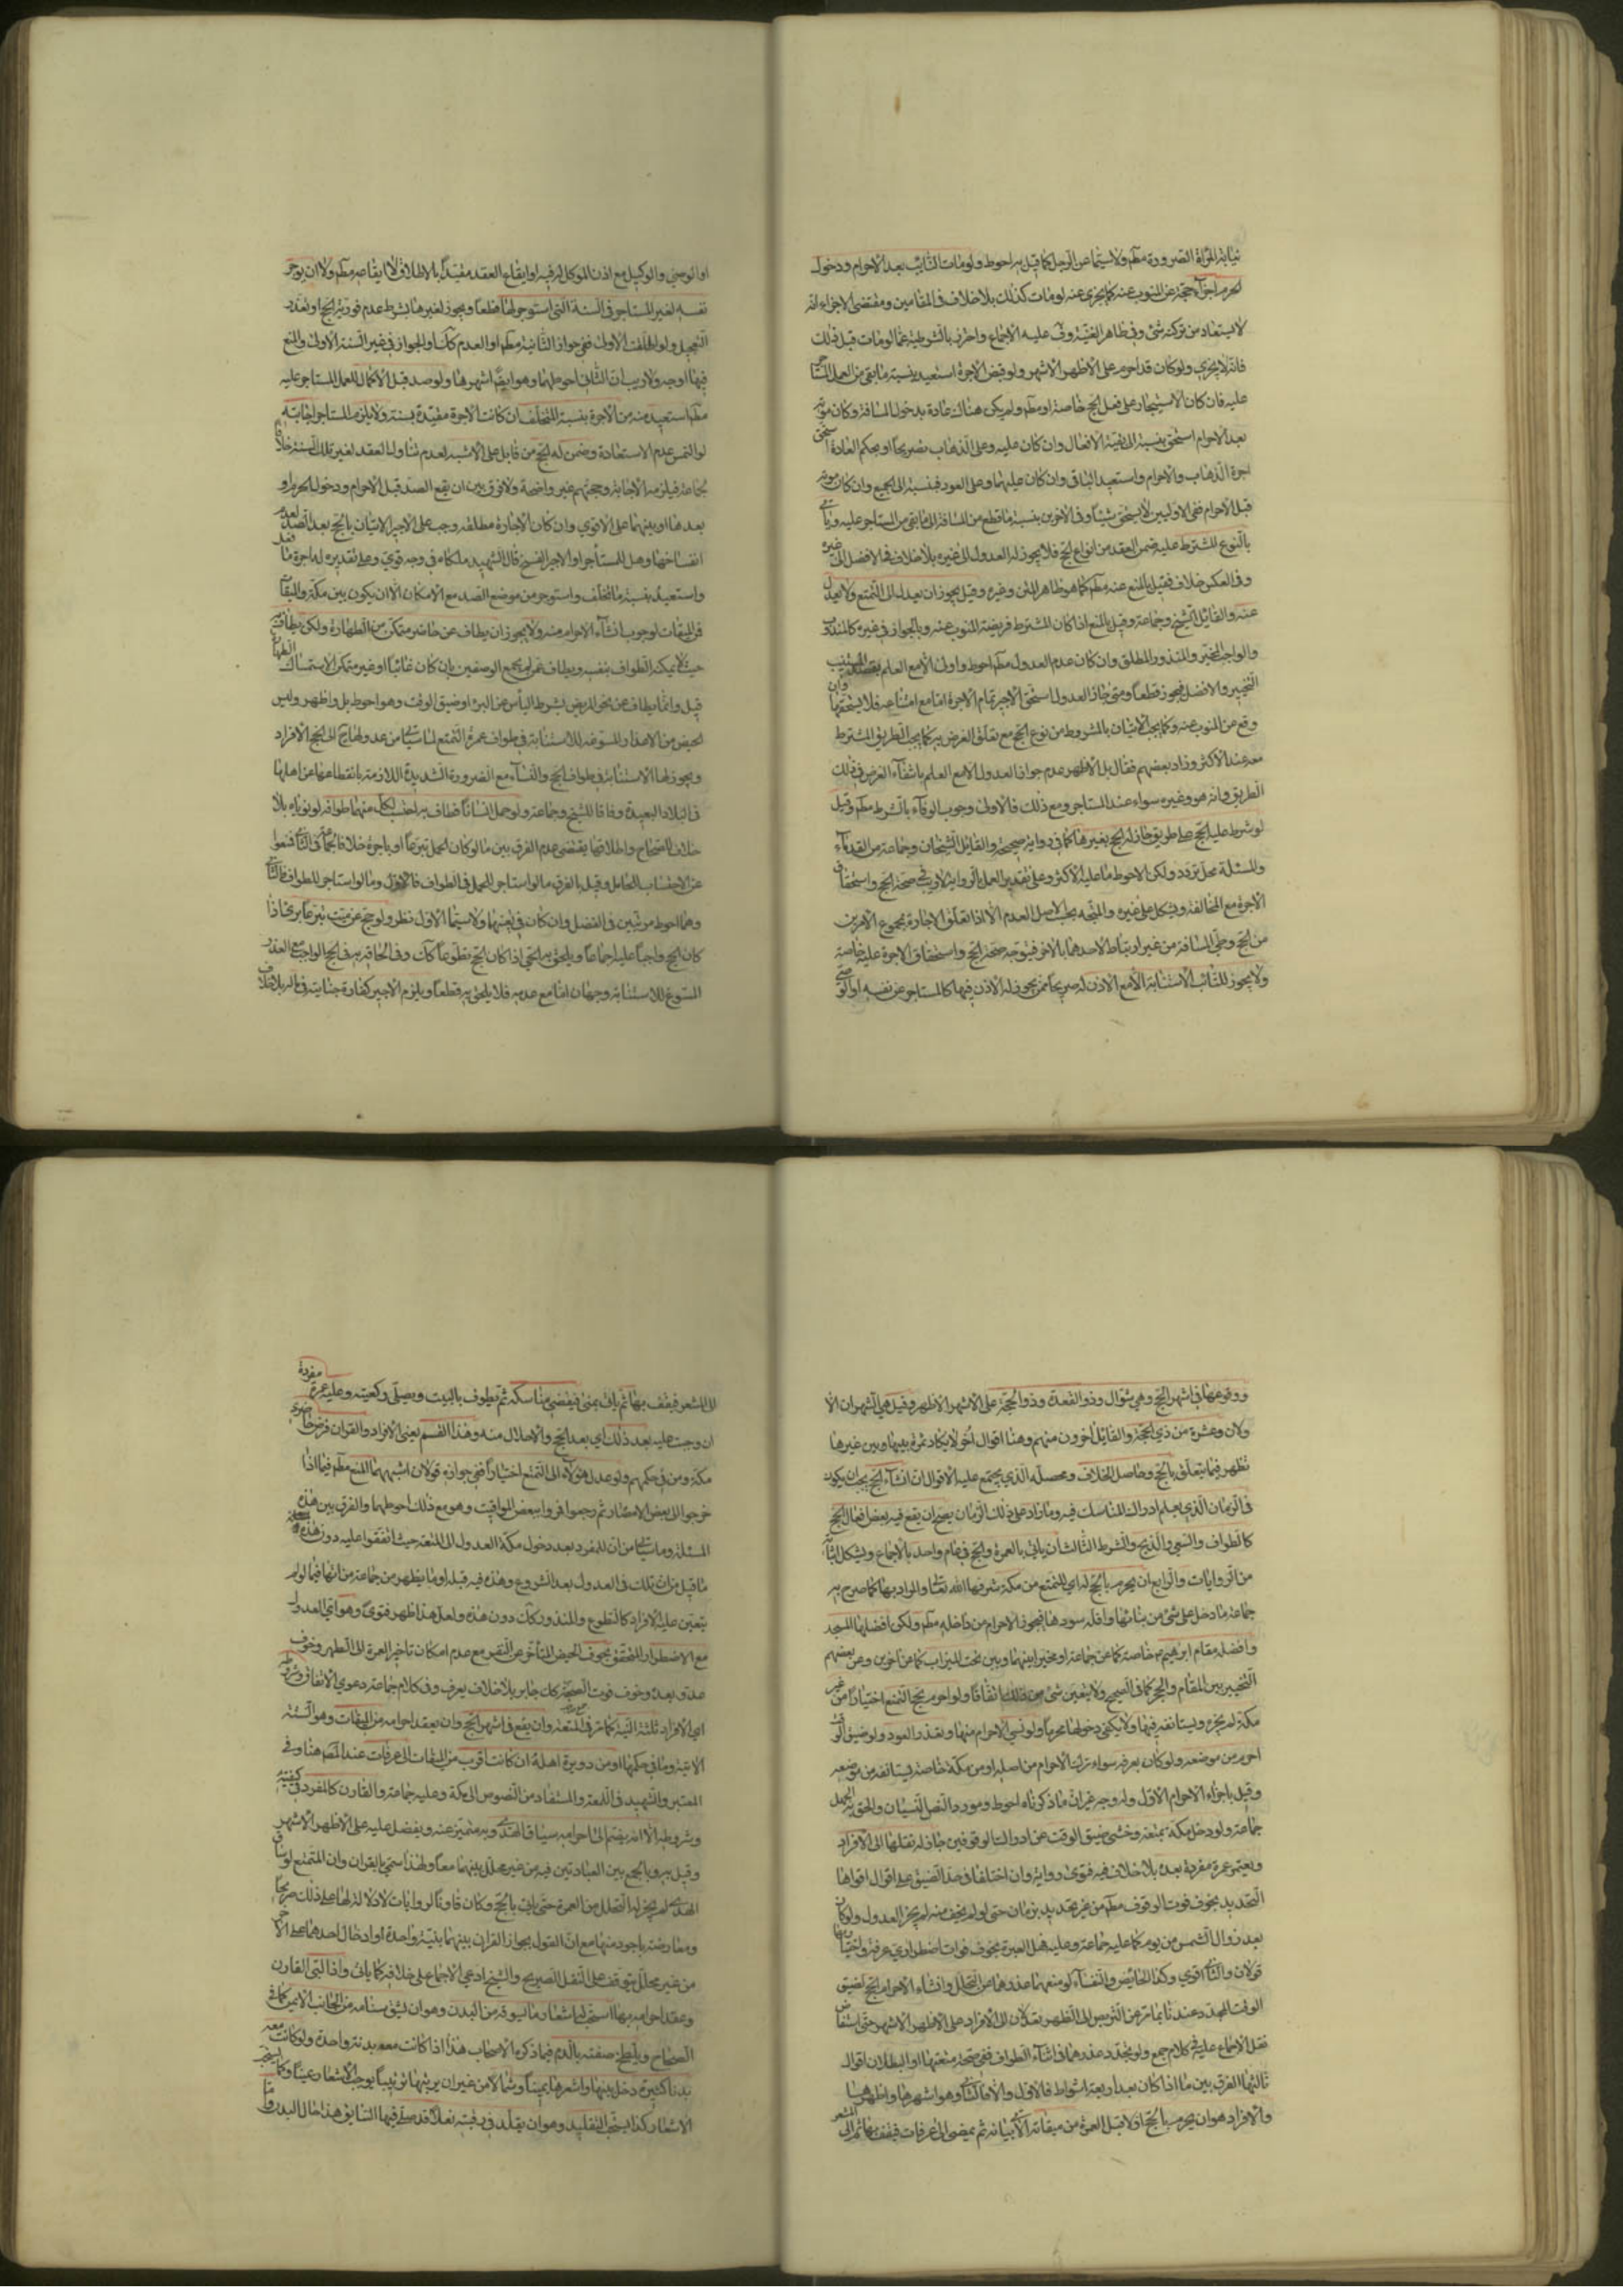 نيابة المرأة الصرورة مطم ولا سيما عن الرجل كما قيل به احوط ولو مات النائب بعد الاحرام ودخول
الحرم اجزأ حجه عن المنوب عنه كما يجزي عنه لو مات كذلك بلا خلاف في المقامين ومقتضى الاجزاء انه
لا يستعاد من تركته شئ وفي ظاهر الغنية وف عليه الاجماع واحترز بالشرطية عما لو مات قبل ذلك
فانه لا يجزي ولو كان قد احرم على الأظهر الأشهر ولو قبض الأجرة استعيد بنسبة ما بقي من العمل المستأجر
عليه فان كان الاستيجار على فعل الحج خاصة او مطم ولم يكن هناك عادة بدخول المسافة وكان موته
بعد الاحرام استحق بنسبته الى بقية الافعال وان كان عليه وعلى الذهاب بصريحاً او بحكم العادة استحق
اجرة الذهاب والاحرام واستعيد الباقي وان كان عليهما وعلى العود فبنسبته الى الجميع وان كان موته
قبل الاحرام ففي الاوليين لا يستحق شيئاً وفي الاخرين بنسبة ما قطع من المسافة الى ما بقي من المستاجر عليه ويأتي
بالنوع المشترط عليه ضمن العقد من انواع الحج فلا يجوز له العدول الى غيره بلا خلاف في الافضل الى غيره
وفي العكس خلاف فقيل بالمنع عنه مطم كما هو ظاهر المتن وغيره وقيل يجوز ان يعدل الى التمتع ولا يعدل
عنه والقائل الشيخ وجماعة وقيل بالمنع اذا كان المشترط فريضة المنوب عنه وبالجواز في غيره كالمندوب
والواجب المخير والمنذور المطلق وان كان عدم العدول مطم احوط واولى الا مع العلم بقصد المستنيب
التخيير والافضل فيجوز قطعاً ومتى جاز العدول استحق الاجير تمام الاجرة اما مع امتناعه فلا يستحقها وان
وقع عن المنوب عنه وكما يجب الاتيان بالمشروط من نوع الحج مع تعلق الغرض به كما يجب الطريق المشترط
معه عند الأكثر وزاد بعضهم فقال بل الأظهر عدم جواز العدول الا مع العلم بانتفاء الغرض في ذلك
الطريق وانه هو وغيره سواء عند المستاجر ومع ذلك فالاولى وجوب الوفاء بالشرط مطم وقيل
لو شرط عليه الحج على طريق جاز له الحج بغيرها كما في رواية صحيحة والقائل الشيخان وجماعة من القدماء
والمسئلة محل تردد ولكن الاحوط ما عليه الأكثر وعلى تقدير العمل بالرواية لا ريب في صحة الحج واستحقاق
الأجرة مع المخالفة ويشكل على غيره والمتجه بحسب الاصل العدم الا اذا تعلق الاجارة بمجموع الأمرين
من الحج وطي المسافة من غير ارتباط لاحدهما بالاخر فيتوجه صحة الحج واستحقاق الاجرة عليه خاصة
ولا يجوز للنائب الاستنابة الا مع الاذن له صريحاً ممن يجوز له الاذن فيها كالمستاجر عن نفسه او الوصي
او الوصي والوكيل مع اذن الموكل له فيه او ايقاع العقد مقيداً بالاطلاق لا ايقاعه مطم ولا ان يوجر
نفسه لغير المستاجر في السنة التي استوجر لها قطعاً ويجوز لغيرها بشرط عدم فورية الحج او تعذر
التعجيل ولو اطلقت الأولى ففي جواز الثانية مطم او العدم كك او الجواز في غير السنة الأولى والمنع
فيها اوجه ولا ريب ان الثاني احوطها وهو ايضاً اشهرها ولو صد قبل الاكمال للعمل المستاجر عليه
مطم استعيد منه من الأجرة بنسبة المتخلف ان كانت الاجرة مقيدة بسنته ولا يلزم المستاجر اجابته
لو التمس عدم الاستعادة وضمن له الحج من قابل على الأشبه لعدم تناول العقد لغير تلك السنة خلافاً
لجماعة فيلزمه الاجابة وحجتهم غير واضحة ولا فرق بين ان يقع الصد قبل الاحرام ودخول الحرم او
بعدهما او بينهما على الاقوى وان كان الاجارة مطلقة وجب على الاجير الاتيان بالحج بعد الصد لعدم
انفساخها وهل للمستأجر او الاجير الفسخ قال الشهيد ملكاه في وجه قوي وعلى تقديره له اجرة ما فعل
واستعيد بنسبة ما تخلف واستوجر من موضع الصد مع الامكان الا ان يكون بين مكة والميقات
فمن الميقات لوجوب انشاء الاحرام منه ولا يجوز ان يطاف عن حاضر متمكن من الطهارة ولكن يطاف به
حيث لا يمكنه الطواف بنفسه ويطاف عمن لم يجمع الوصفين بان كان غائباً او غير متمكن الاستمساك الطهارة
قيل وانما يطاف عن نحو المريض بشرط اليأس عن البرء او ضيق الوقت وهو احوط بل واظهر وليس
الحيض من الاعذار المسوغة للاستنابة في طواف عمرة التمتع لما سياتي من عدولها الى الحج الافراد
ويجوز لها الاستنابة في طواف الحج والنساء مع الضرورة الشديدة اللازمة بانقطاعها عن اهلها
في البلاد البعيدة وفاقا للشيخ وجماعة ولو حمل انساناً فطاف به احتسب لكل منهما طوافه لو نوياه بلا
خلاف للصحاح واطلاقها يقتضي عدم الفرق بين ما لو كان الحمل تبرعاً او باجرة خلافا لجماعة في الثاني فمنعوا
عن الاحتساب للحامل وقيل بالفرق ما لو استاجر للحمل في الطواف فالاول وما لو استاجر للطواف فالثاني
وهما احوط مرتبين في الفضل وان كان في تعينها ولا سيما الاول نظر ولو حج عن ميت تبرعاً برئ اذا
كان الحج واجباً عليه اجماعاً ويلحق به الحي اذا كان الحج تطوعاً كك وفي الحاقه به في الحج الواجب مع العذر
المسوغ للاستنابة وجهان اما مع عدمه فلا يلحق به قطعاً ويلزم الاجير كفارة جنايته في ماله بلا خلاف
ووقوعها في اشهر الحج وهي شوال وذو القعدة وذو الحجة على الاشهر الاظهر وقيل هي الشهران الا
ولان وعشرة من ذي الحجة والقائل آخرون منهم وهنا اقوال اخر لا يكاد ثمرة بينها وبين غيرها
تظهر فيما يتعلق بالحج وحاصل الخلاف ومحصله الذي يجتمع عليه الاقوال ان انشاء الحج يجب ان يكون
في الزمان الذي يعلم ادراك المناسك فيه وما زاد على ذلك الزمان يصح ان يقع فيه بعض افعال الحج
كالطواف والسعي والذبح والشرط الثالث ان ياتي بالعمرة والحج في عام واحد بالاجماع ويشكل اثباته
من الروايات والرابع ان يحرم بالحج له اي للتمتع من مكة شرفها الله تعالى والمراد بها كما صرح به
جماعة ما دخل على شئ من بنائها واقله سورها فيجوز الاحرام من داخله مطم ولكن افضلها المسجد
وافضله مقام ابرهيم ع خاصة كما عن جماعة او مخيرا بينها وبين تحت الميزاب كما عن اخرين وعن بعضهم
التخيير بين المقام والحجر كما في الصحيح ولا يتعين شئ من ذلك اتفاقاً ولو احرم بحج التمتع اختياراً من غير
مكة لم يجزه ويستانفه فيها ولا يكفي دخولها محرماً ولو نسي الاحرام منها وتعذر العود ولو ضيق الوقت
احرم من موضعه ولو كان بعرفة سواء ترك الاحرام من اصله او من مكة خاصة ليستانفه من موضعه
وقيل باجزاء الاحرام الاول وله وجه غير ان ما ذكرناه احوط ومورد النص النسيان والحق به الجهل
جماعة ولو دخل مكة بمتعة وخشي ضيق الوقت عن ادراك الوقوفين جاز له نقلها الى الافراد
ويعتمر عمرة مفردة بعده بلا خلاف فيه فتوى ورواية وان اختلفا في حد الضيق على اقوال اقواها
التحديد بخوف فوت الوقوف مطم من غير تحديد بزمان حتى لو لم يخف منه لم يجز العدول ولو كان
بعد زوال الشمس من يوم كما عليه جماعة وعليه فهل العبرة بخوف فوات اضطراري عرفة او اختيا
قولان والثاني اقوى وكذا الحائض والنفساء لو منعهما عذرهما عن التحلل وانشاء الاحرام الحج لضيق
الوقت المجدد عند ثانيهما عن التربص الى الظهر تعدلان الى الافراد على الاظهر الاشهر حتى استفاض
نقل الاجماع عليه في كلام جمع ولو تجدد عذرهما في اثناء الطواف ففي صحة متعتها او البطلان اقوال
ثالثها الفرق بين ما اذا كان بعد اربعة اشواط فالاول والا فالثاني وهو اشهرها واظهرها
والافراد هو ان يحرم بالحج اولا قبل العمرة من ميقاته الآتي بيانه ثم يمضي الى عرفات فيقف بها ثم الى المشعر
الى المشعر فيقف بها ثم ياتي بمنى فيقضي مناسكه ثم يطوف بالبيت ويصلي ركعتيه وعليه عمرة مفردة
ان وجبت عليه بعد ذلك اي بعد الحج والاحلال منه وهذا القسم يعني الافراد والقران فرض حاضري
مكة ومن في حكمهم ولو عدل هؤلاء الى التمتع اختياراً ففي جوازه قولان اشبههما المنع مطم فيما اذا
خرجوا الى بعض الامصار ثم رجعوا فمروا ببعض المواقيت وهو مع ذلك احوطهما والفرق بين هذه
المسئلة وما ياتي من ان للمفرد بعد دخول مكة العدول الى المتعة حيث اتفقوا عليه دون هذه
ما قيل من ان تلك في العدول بعد الشروع وهذه فيه قبله او ما يظهر من جماعة من انها فيما لو لم
يتعين عليه الافراد كالتطوع والمنذور كك دون هذه ولعل هذا اظهر فتوى وهو اي العدول
مع الاضطرار المتحقق بخوف الحيض المتأخر عن النفر مع عدم امكان تاخير العمرة الى الطهر وخوف
عدو بعده وخوف فوت الصحبة كك جايز بلا خلاف يعرف وفي كلام جماعة دعوى الاتفاق وشروطه
اي الافراد ثلثة النية كما مر في المتعة وان يقع في اشهر الحج وان يعقد احرامه من الميقات وهو الستة
الاتية وما في حكمها او من دويرة اهله ان كانت اقرب من الميقات الى عرفات عند المصنف هنا وفي
المعتبر والشهيد في اللمعة والمستفاد من النصوص الى مكة وعليه جماعة والقارن كالمفرد في كيفيته
وشروطه الا انه يضم الى احرامه سياق الهدي وبه متميز عنه ويفضل عليه على الاظهر الاشهر
وقيل به وبالجمع بين العبادتين فيه من غير محلل بينهما معاً ولهذا سمي بالقران وان المتمتع لو ساق
الهدي لم يجز له التحلل من العمرة حتى ياتي بالحج وكان قارناً لروايات لا دلالة لها على ذلك صريحاً
ومعارضة باجود منها مع ان القول بجواز القران بينهما بنية واحدة او ادخال احدهما على الاخر
من غير محلل يتوقف على النقل الصريح والشيخ ادعى الاجماع على خلافه كما ياتي واذا لبى القارن
وعقد احرامه بها استحب له اشعار ما يسوقه من البدن وهو ان يشق سنامه من الجانب الايمن كما في
الصحاح ويلطخ صفحته بالدم فيما ذكره الاصحاب هذا اذا كانت معه بدنة واحدة ولو كانت معه
بدنا كثيرة دخل بينها واشعرها يميناً وشمالا من غير ان يرتبها ترتيباً يوجب الاشعار عيناً وكما يستحب
الاشعار كذا يستحب التقليد وهو ان يقلد في رقبته نعلاً قد صلى فيها السائق هذا حال البدن واما